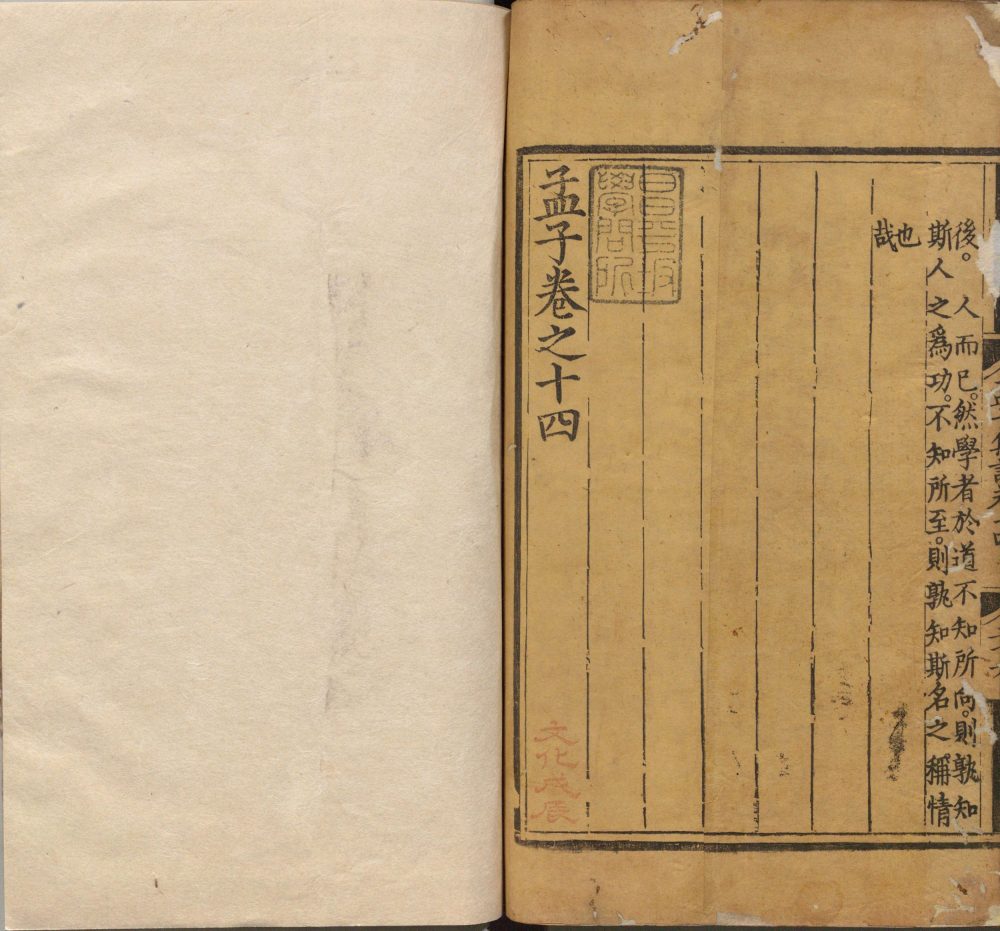 後。人而已。然學者於道不知所向。則孰知
斯人之爲功。不知所至。則孰知斯名之稱情
也
哉
孟子卷之十四
學問所
文化戊辰